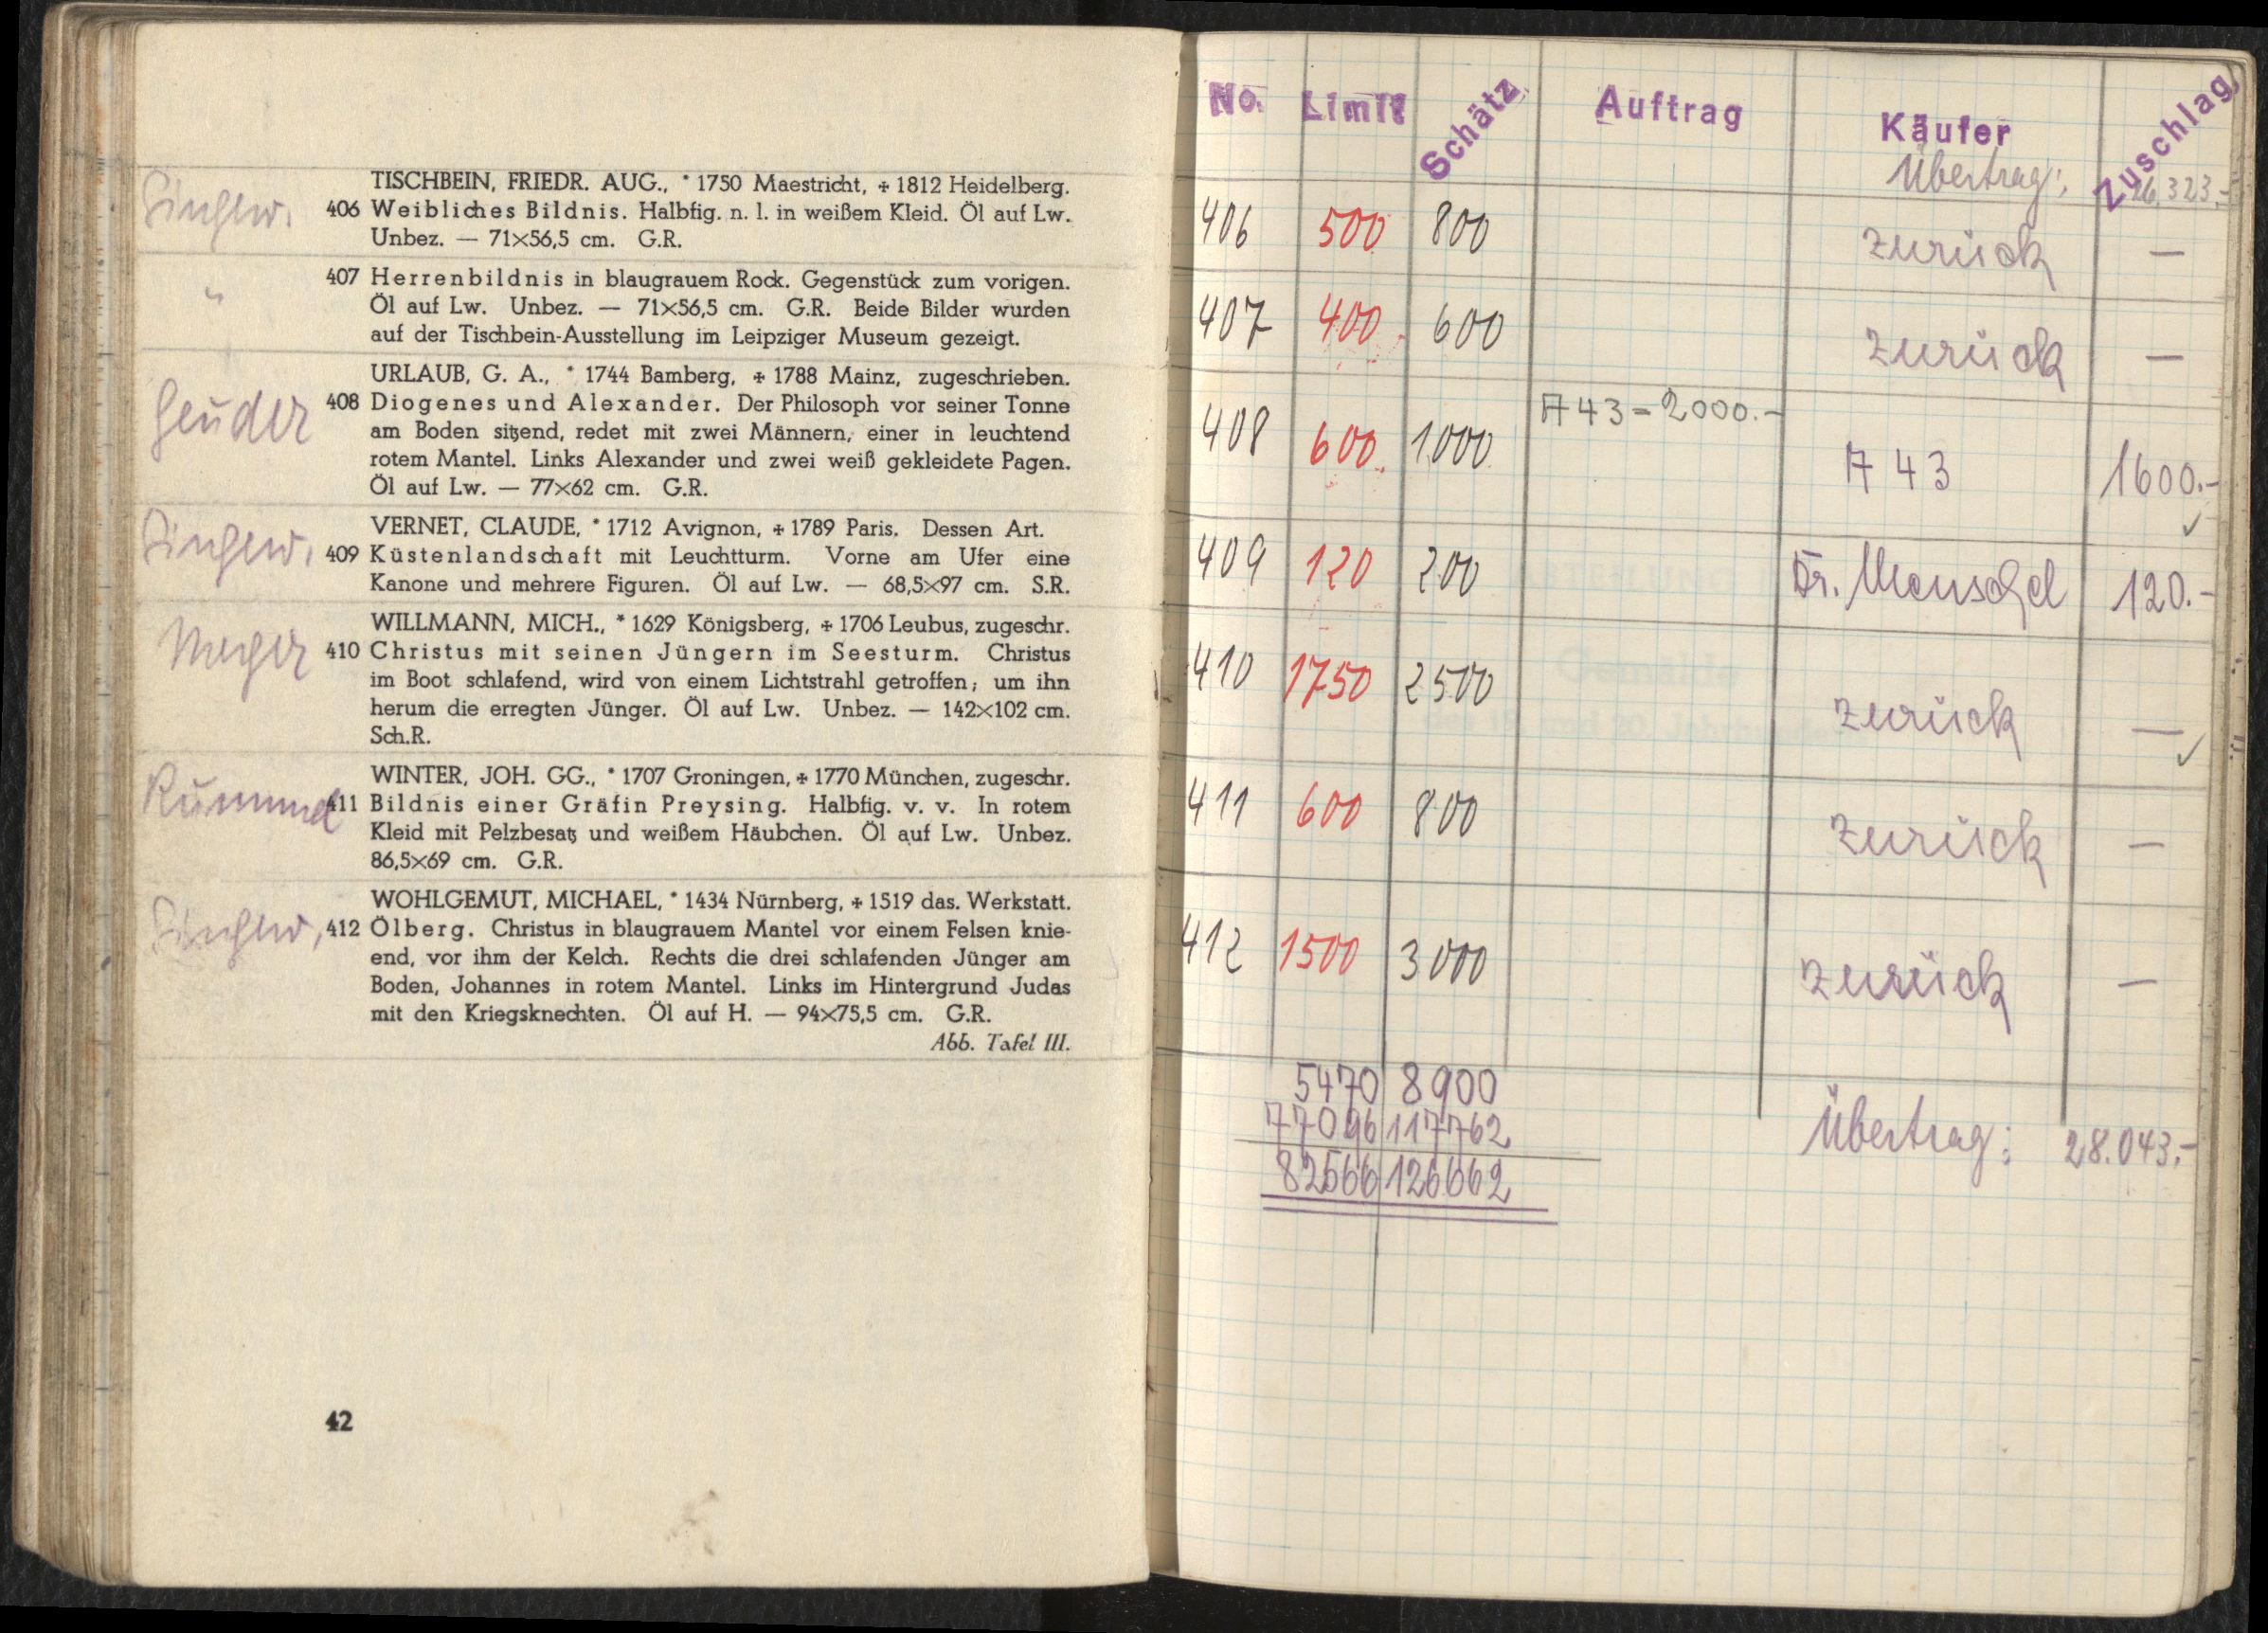 TISCHBEIN, FRIEDR. AUG., * 1750 Maestricht, + 1812 Heidelberg.
406 Weibliches Bildnis. Halbfig. n. l. in weißem Kleid. Öl auf Lw.
Unbez. — 71×56,5 cm. G.R.
407 Herrenbildnis in blaugrauem Rock. Gegenstück zum vorigen.
"
Öl auf Lw. Unbez. — 71×56,5 cm. G.R. Beide Bilder wurden
auf der Tischbein-Ausstellung im Leipziger Museum gezeigt.
URLAUB, G. A., * 1744 Bamberg, + 1788 Mainz, zugeschrieben.
Geuder 408 Diogenes und Alexander. Der Philosoph vor seiner Tonne
am Boden sitzend, redet mit zwei Männern, einer in leuchtend
rotem Mantel. Links Alexander und zwei weiß gekleidete Pagen.
Öl auf Lw. — 77×62 cm. G.R.
VERNET, CLAUDE, * 1712 Avignon, + 1789 Paris. Dessen Art.
409 Küstenlandschaft mit Leuchtturm. Vorne am Ufer eine
Kanone und mehrere Figuren. Öl auf Lw. — 68,5×97 cm. S.R.
WILLMANN, MICH., * 1629 Königsberg, + 1706 Leubus, zugeschr.
410 Christus mit seinen Jüngern im Seesturm. Christus
im Boot schlafend, wird von einem Lichtstrahl getroffen; um ihn
herum die erregten Jünger. Öl auf Lw. Unbez. — 142×102 cm.
Sch.R.
WINTER, JOH. GG., * 1707 Groningen, + 1770 München, zugeschr.
Kümmel 411 Bildnis einer Gräfin Preysing. Halbfig. v. v. In rotem
Kleid mit Pelzbesatz und weißem Häubchen. Öl auf Lw. Unbez.
86,5×69 cm. G.R.
WOHLGEMUT, MICHAEL, * 1434 Nürnberg, + 1519 das. Werkstatt.
412 Ölberg. Christus in blaugrauem Mantel vor einem Felsen knie-
end, vor ihm der Kelch. Rechts die drei schlafenden Jünger am
Boden, Johannes in rotem Mantel. Links im Hintergrund Judas
mit den Kriegsknechten. Öl auf H. — 94×75,5 cm. G.R.
Abb. Tafel III.
42
No. Limit Schätz. Auftrag Käufer Zuschlag
Übertrag: 26.323.-
406 500 800 zurück —
407 400 600 zurück —
408 600 1000 A 43 = 2000.- A 43 1600.-
409 120 200 Dr. Menschel 120.-
410 1750 2500 zurück —
411 600 800 zurück —
412 1500 3000 zurück —
5470 8900
77096 117762
82566 126662
Übertrag: 28.043.-